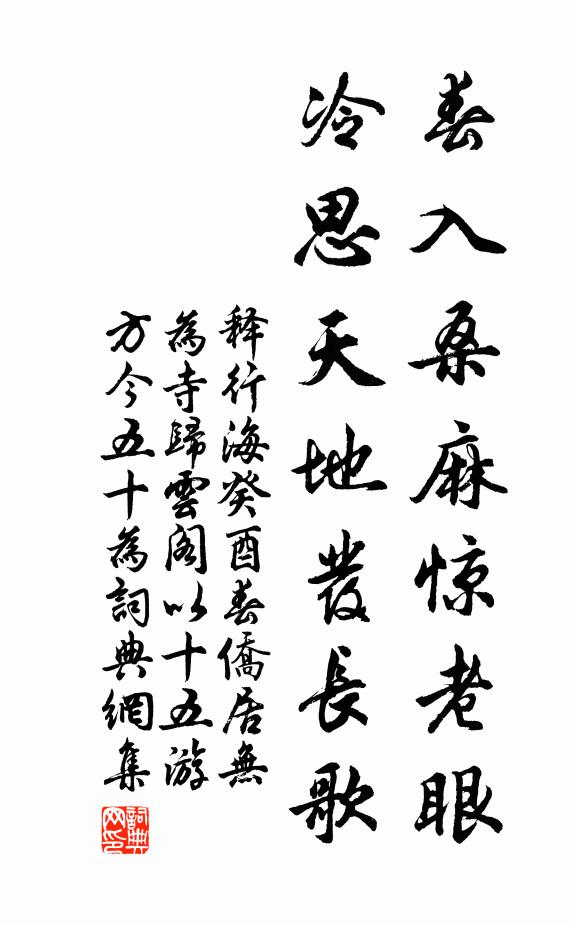 春入桑麻惊老眼
冷思天地發長歌
释行海癸酉春僑居無
為寺歸雲阁以十五游
方今五十為詞典網集
詞典网印